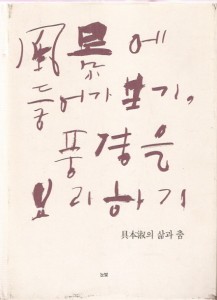 風景에
들어가 보기,
풍경을
요리하기
具本淑의 삶과 춤